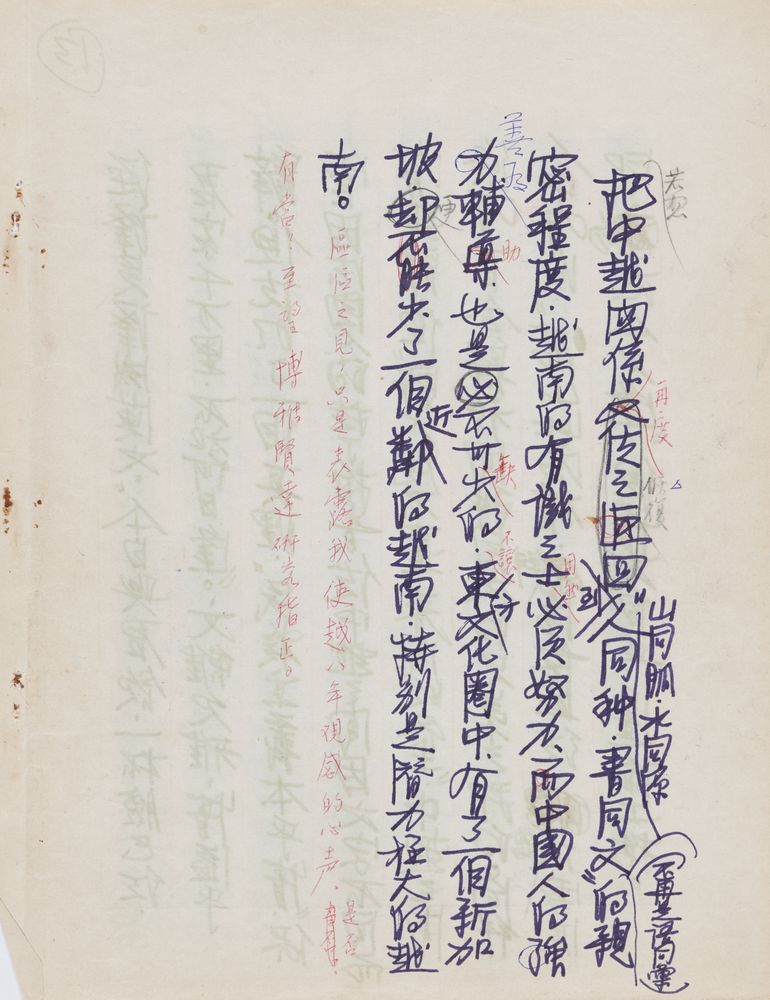 若想
把中越國係 再度 修復 到 “山同脈·水同源 人同種·書同文”的親
(不再是語彙)
密程度·越南的有識之士必須努力、而中國人的強
善為
力輔導 助 也是必不可少 缺 的·東方文化圈中、有了一個新加
坡·卻不能少了一個鄰近的越南·特別是潛力極大的越
南。區區之見，只是表露我使越八年觀感的心声。是否
有當，至望博雅賢達研究指正。